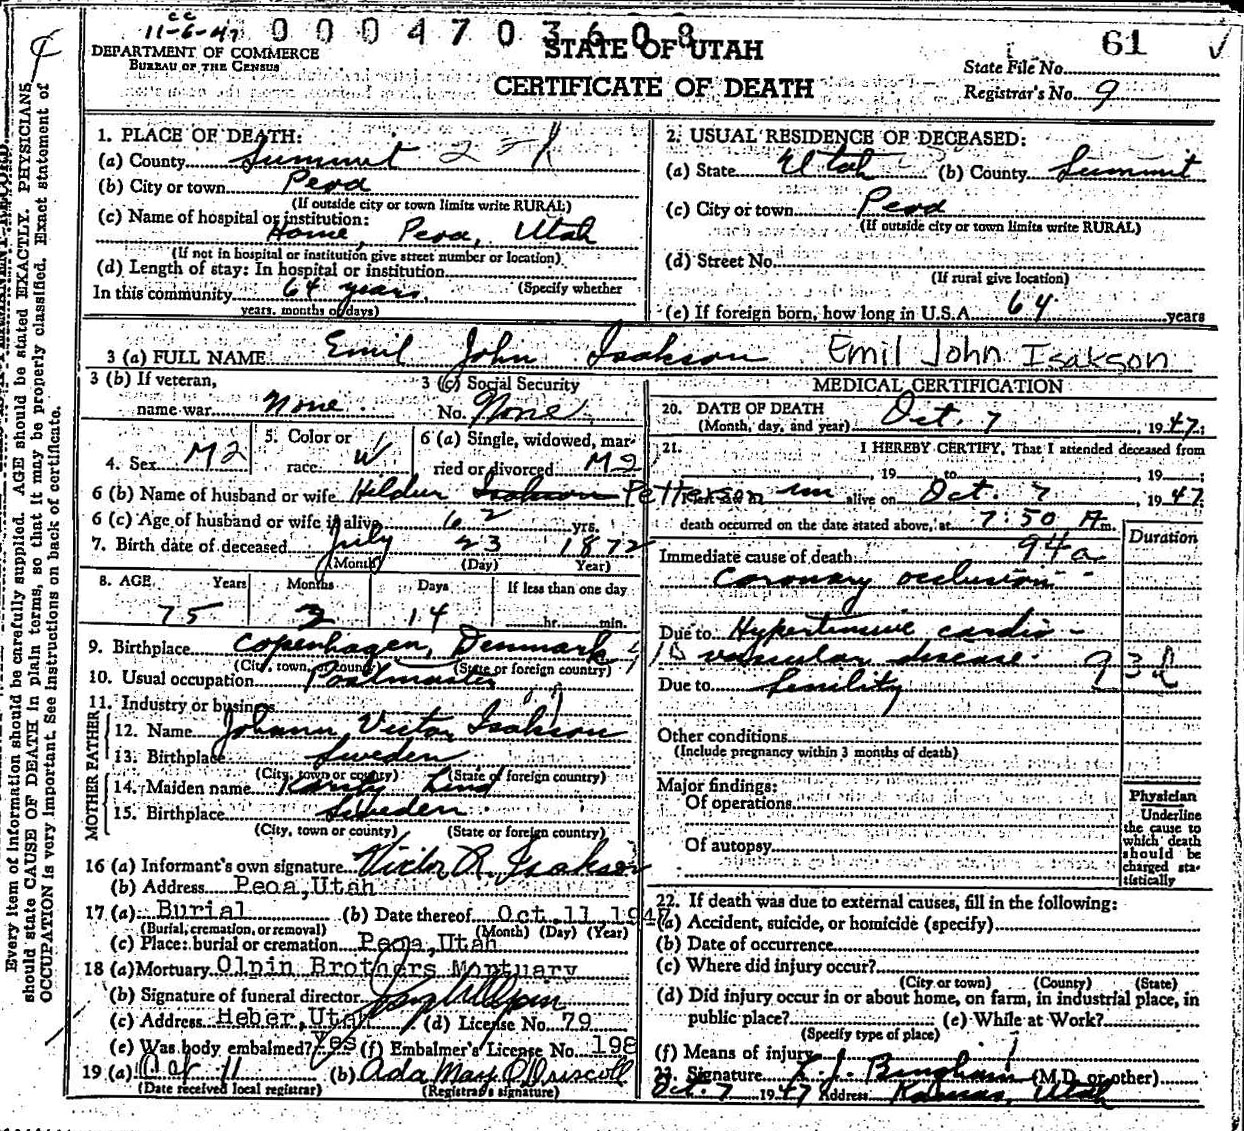 cc
11-6-47
0 0 0 4 7 0 3 6 0 8
61
DEPARTMENT OF COMMERCE
BUREAU OF THE CENSUS
STATE OF UTAH
CERTIFICATE OF DEATH
State File No.
Registrar's No. 9
Every item of information should be carefully supplied. AGE should be stated EXACTLY. PHYSICIANS
should state CAUSE OF DEATH in plain terms, so that it may be properly classified. Exact statement of
OCCUPATION is very important. See instructions on back of certificate.
1. PLACE OF DEATH:
(a) County Summit
(b) City or town Peoa
(If outside city or town limits write RURAL)
(c) Name of hospital or institution:
Home, Peoa, Utah
(If not in hospital or institution give street number or location)
(d) Length of stay: In hospital or institution
In this community 64 years (Specify whether
years, months or days)
2. USUAL RESIDENCE OF DECEASED:
(a) State Utah (b) County Summit
(c) City or town Peoa
(If outside city or town limits write RURAL)
(d) Street No.
(If rural give location)
(e) If foreign born, how long in U.S.A. 64 years
3 (a) FULL NAME Emil John Isakson Emil John Isakson
3 (b) If veteran,
name war None
3 (c) Social Security
No. None
4. Sex M2
5. Color or
race W
6 (a) Single, widowed, mar-
ried or divorced M2
6 (b) Name of husband or wife Hildur Isakson Petterson
6 (c) Age of husband or wife if alive 62 yrs.
7. Birth date of deceased July 23 1872
(Month) (Day) Year)
8. AGE Years Months Days If less than one day
75 14 hr. min.
9. Birthplace Copenhagen, Denmark
(City, town, or county) (State or foreign country)
10. Usual occupation Postmaster
11. Industry or business
FATHER
12. Name Johann Victor Isakson
13. Birthplace Sweden
(City, town or county) (State of foreign country)
MOTHER
14. Maiden name Lind
15. Birthplace Sweden
(City, town or county) (State or foreign country)
16 (a) Informant's own signature Victor R. Isakson
(b) Address Peoa, Utah
17 (a) Burial (b) Date thereof Oct. 11, 1947
(Burial, cremation, or removal) (Month) (Day) (Year)
(c) Place: burial or cremation Peoa, Utah
18 (a) Mortuary Olpin Brothers Mortuary
(b) Signature of funeral director
(c) Address Heber, Utah (d) License No. 79
(e) Was body embalmed? Yes (f) Embalmer's License No. 198
19 (a) Oct 11 (b) Ada May O'Driscoll
(Date received local registrar) (Registrar's signature)
MEDICAL CERTIFICATION
20. DATE OF DEATH
(Month, day, and year) Oct. 7, 1947
21. I HEREBY CERTIFY, That I attended deceased from
, 19 to , 19 ;
im alive on Oct. 7 1947
death occurred on the date stated above, at 7:50 A m.
Duration
Immediate cause of death 94a
Coronary occlusion
Due to Hypertensive cardio-
vascular disease 93d
Due to Senility
Other conditions
(Include pregnancy within 3 months of death)
Major findings:
Of operations
Of autopsy
Physician
Underline
the cause to
which death
should be
charged sta-
tistically
22. If death was due to external causes, fill in the following:
(a) Accident, suicide, or homicide (specify)
(b) Date of occurrence
(c) Where did injury occur?
(City or town) (County) (State)
(d) Did injury occur in or about home, on farm, in industrial place, in
public place? (e) While at Work?
(Specify type of place)
(f) Means of injury
23. Signature Bingham (M.D. or other)
Oct. 7 1947 Address Kamas, Utah